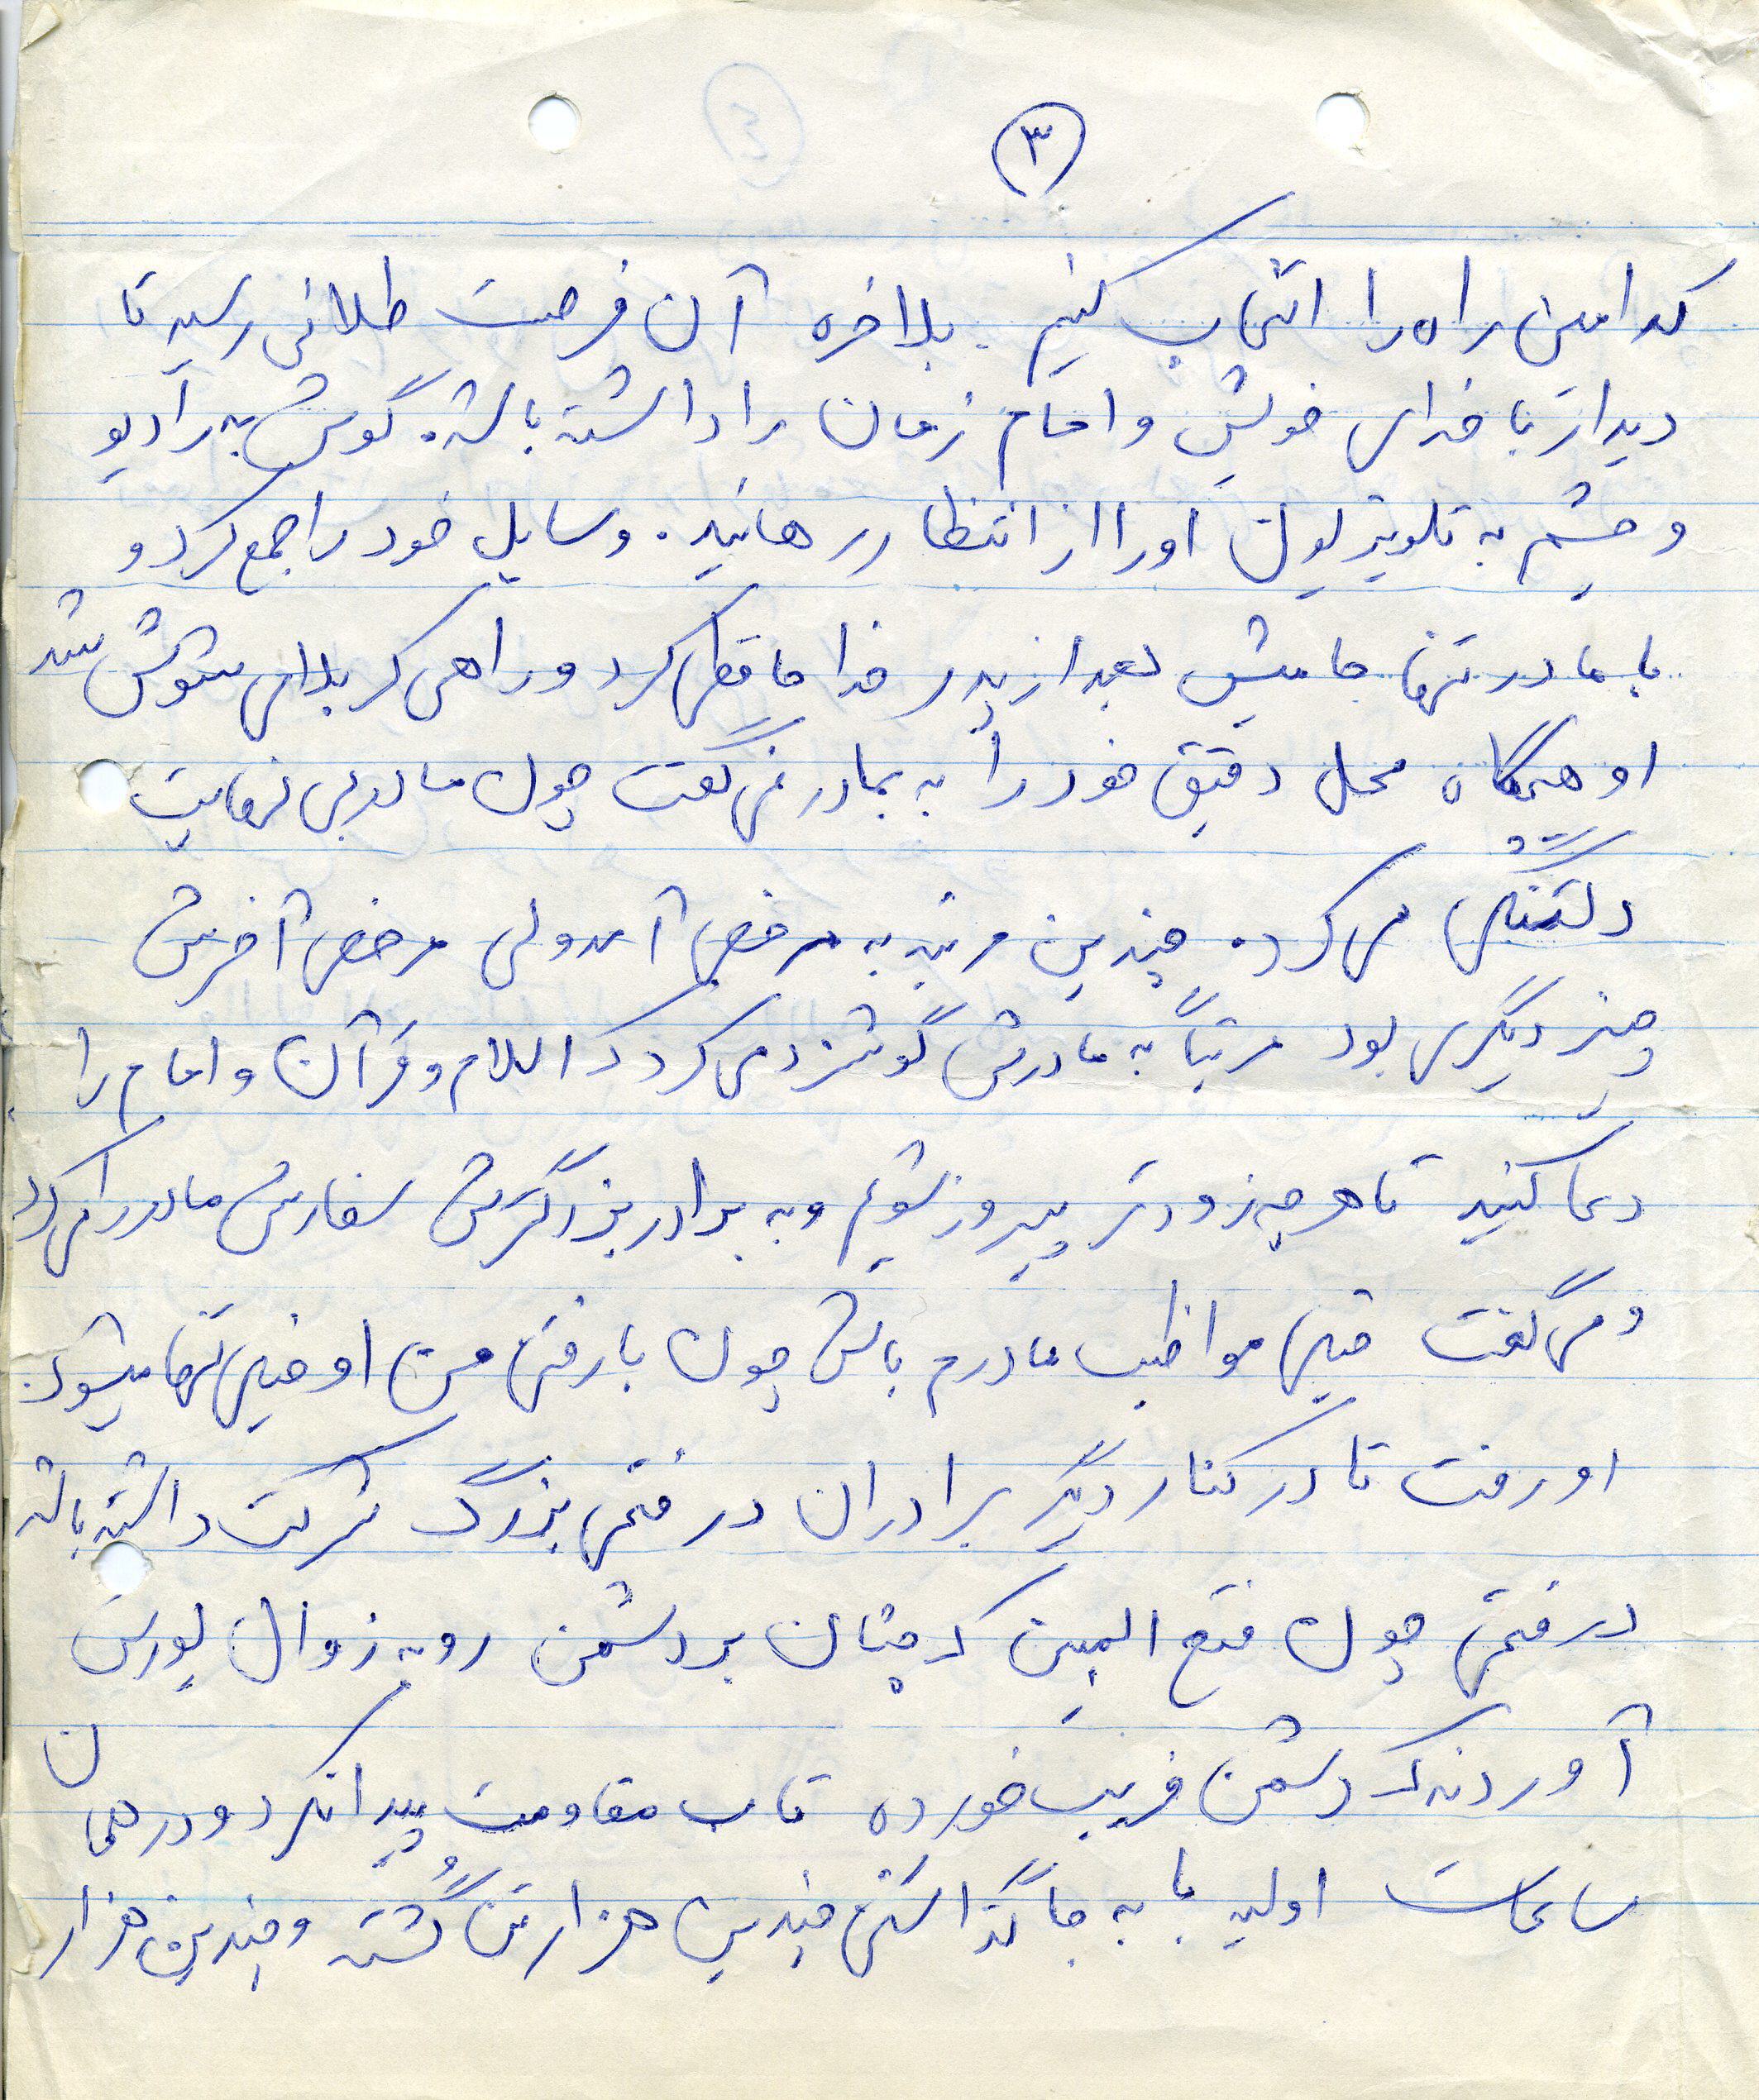 ۳
کدامین راه را انتخاب کنیم. بلاخره آن فرصت طلائی رسید تا
دیدار با خدای خویش و امام زمان را داشته باشد. گوش به رادیو
و چشم به تلویزیون او را از انتظار رهانید. وسایل خود را جمع کرد و
با مادر تنها حامیش بعد از پدر خدا حافظی کرد و راهی کربلای شوش شد
او هیچگاه محل دقیق خود را به مادر نمی گفت چون مادر بی نهایت
دلتنگی می کرد. چندین مرتبه به مرخصی آمد ولی مرخصی آخرش
چیز دیگری بود مرتباً به مادرش گوشزد می کرد که اسلام و قرآن و امام را
دعا کنید تا هر چه زودتر پیروز شویم و به برادر بزرگترش سفارش مادر را می کرد
و می گفت خیلی مواظب مادرم باش چون با رفتن من او خیلی تنها میشود.
او رفت تا در کنار دیگر برادران در فتحی بزرگ شرکت داشته باشد
در فتحی چون فتح المبین که چنان بر دشمن رو به زوال یورش
آوردند که دشمن فریب خورده تاب مقاومت پیدا نکرد و در همان
ساعات اولیه با به جا گذاشتن چندین هزار تن کُشته و چندین هزار